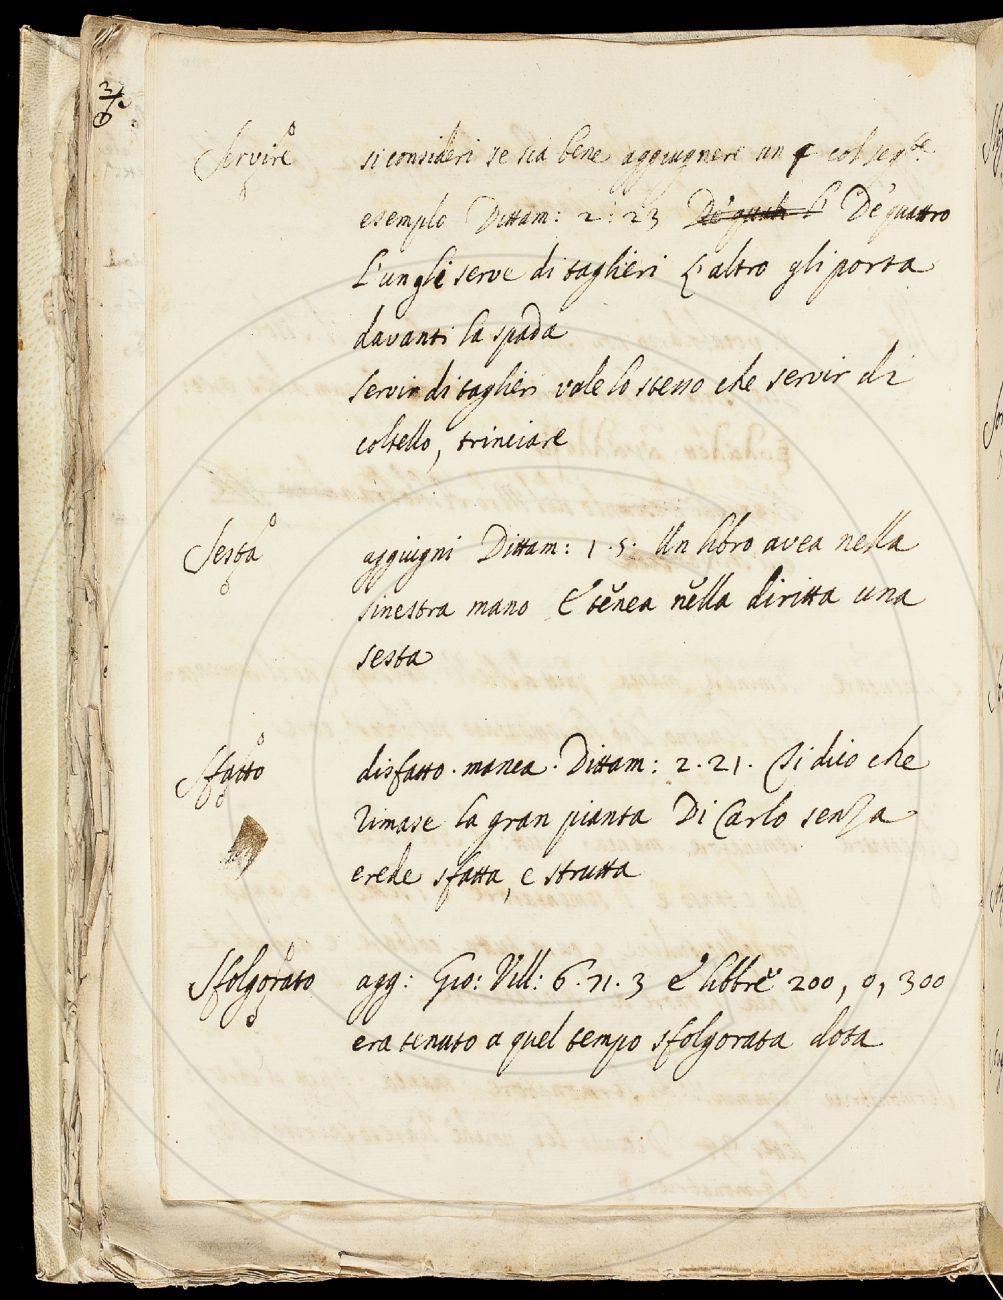 Servire si consideri se sia bene aggiugnere un § col seg.te
esemplo Dittam: 2. 23 De' quattro
L'un gli serve di taglieri L'altro gli porta
davanti la spada
servir di taglieri vale lo stesso che servir di
coltello, trinciare
Sesta aggiugni Dittam: 1. 5. Un libro avea nella
sinestra mano E tenea nella diritta una
sesta
Sfatto disfatto. manca. Dittam: 2. 21. Si dico che
rimase la gran pianta Di Carlo senza
erede sfatta, e strutta
Sfolgorato agg: Gio: Vill: 6. 71. 3 E libbre 200, o, 300
era tenuto a quel tempo sfolgorata dota